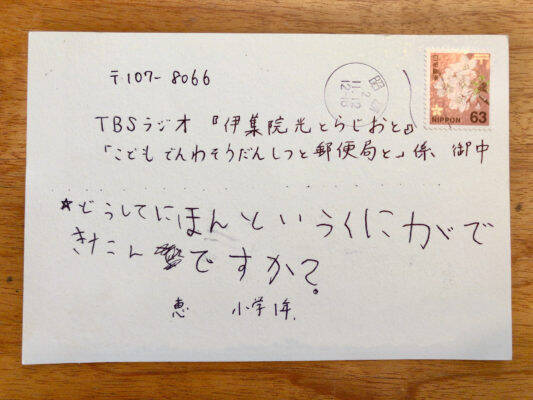 〒107-8066
TBSラジオ『伊集院光とらじおと』
「こどもでんわそうだんしつと郵便局と」係 御中
*どうしてにほんというくにがで
きたこんですか?
恵 小学1年.
NIPPON 63
2
11.12
12-18